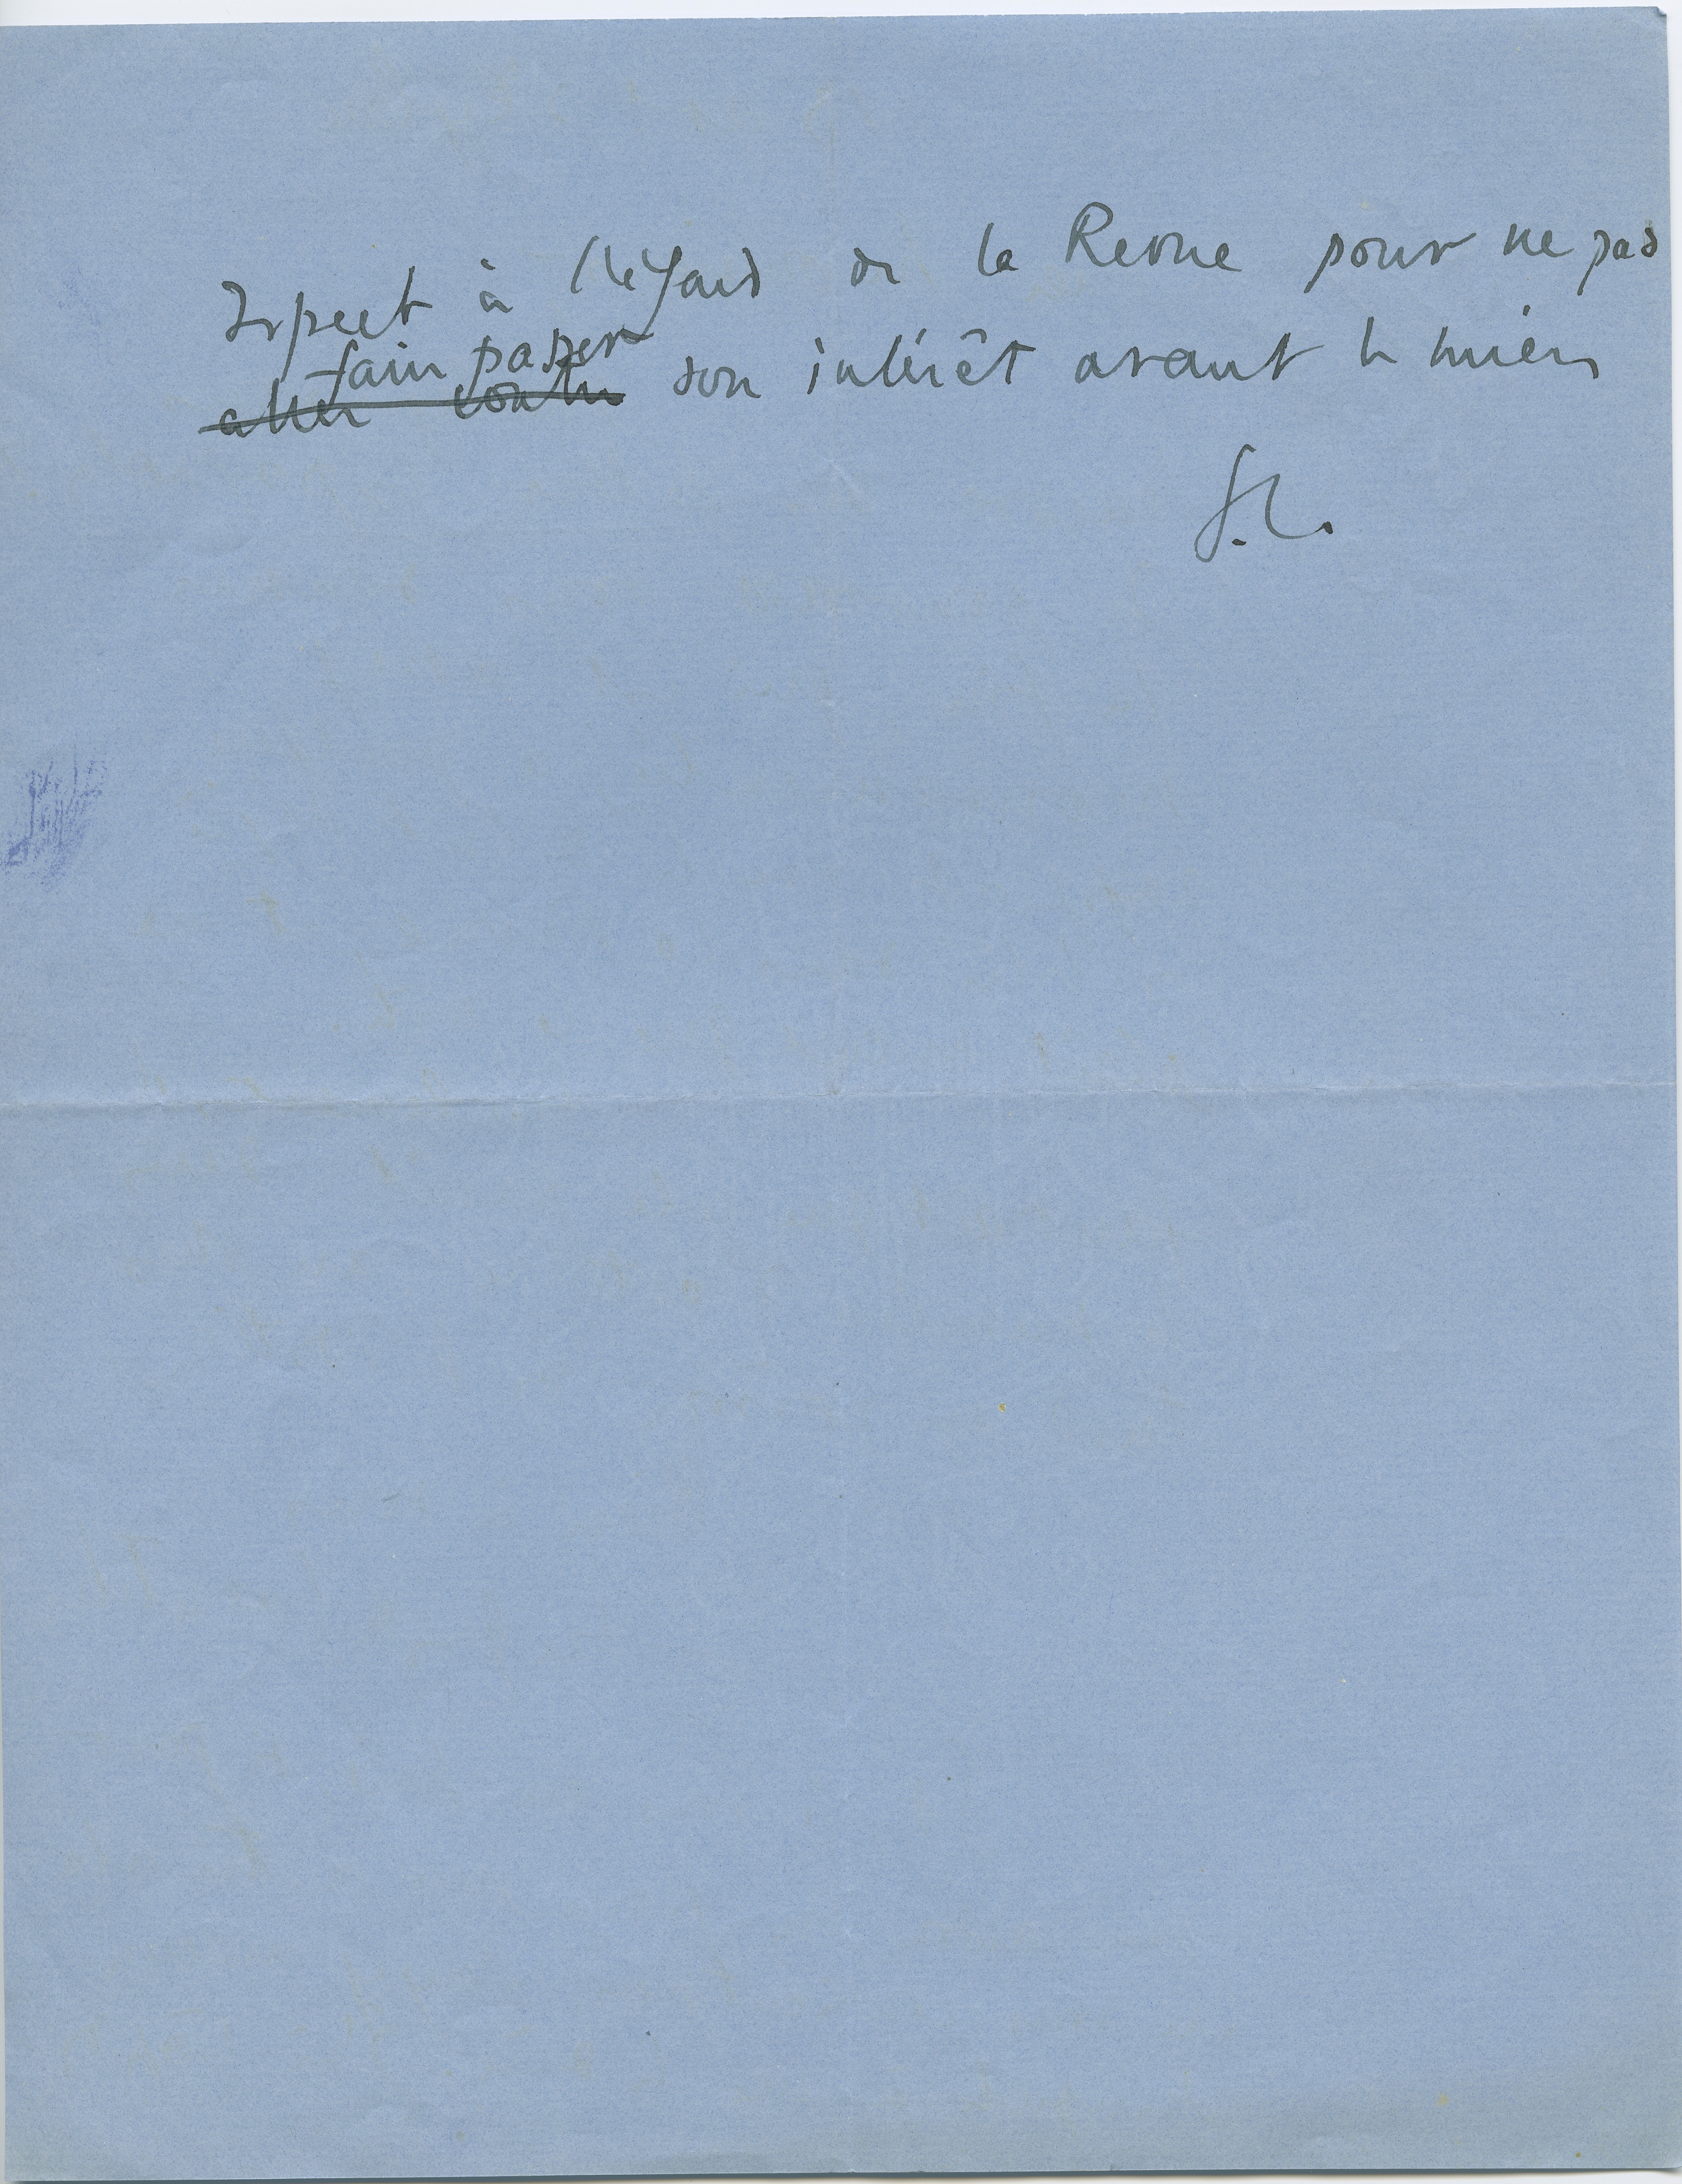 respect à l'égard de la Revue pour ne pas
faire passer
aller contre son intérêt avant le mien